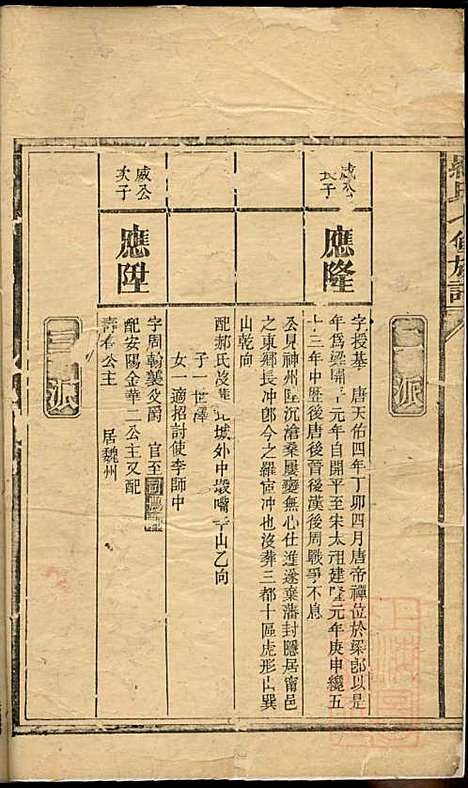 威公
長子
應隆
字授基 唐天佑四年丁卯四月唐帝禪位於梁郎以是
年為梁開平元年自開平至宋太祖建隆元年庚申纔五
十三年中歷後唐後晉後漢後周戰爭不息
公見神州陸沉滄桑屢變無心仕進遂棄藩封隱居甯邑
之東鄉長冲郎今之羅宦冲也沒葬三都十區虎形山巽
山乾向
配郝氏沒葬 城外中墩嘴辛山乙向
子一世澤
女一適招討使李師中
威公
次子
應陞
字周翰襲父爵 官至
配安陽金華二公主又配
壽春公主 居魏州
三 派
三 派